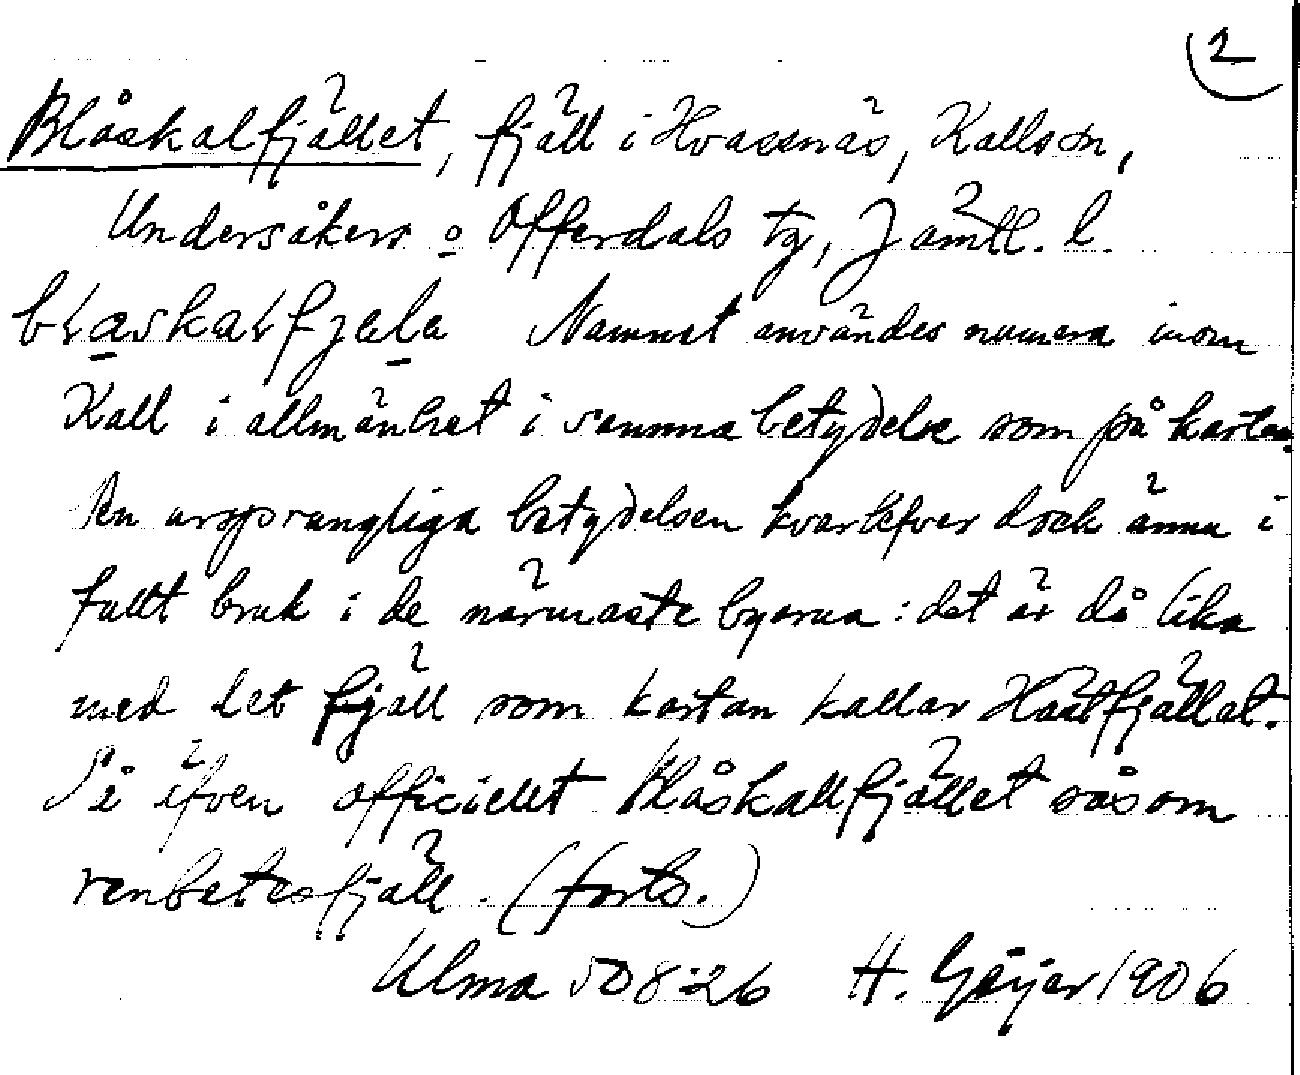 2
Blåskalfjället, fjäll i Hvassnäs, Kallsn,
Undersåkers o Offerdals tg, Jämtl. l.
blaskalfjæla Namnet användes numera inom
Kall i allmänhet i samma betydelse som på kartan.
Den ursprungliga betydelsen kvarlefver dock ännu i
fullt bruk i de närmaste byarna: det är då lika
med det fjäll som kartan kallar Håstfjället.
Så äfven officiellt Blåskallfjället såsom
renbetesfjäll. (forts.)
Ulma 508:26 H. Geijer 1906